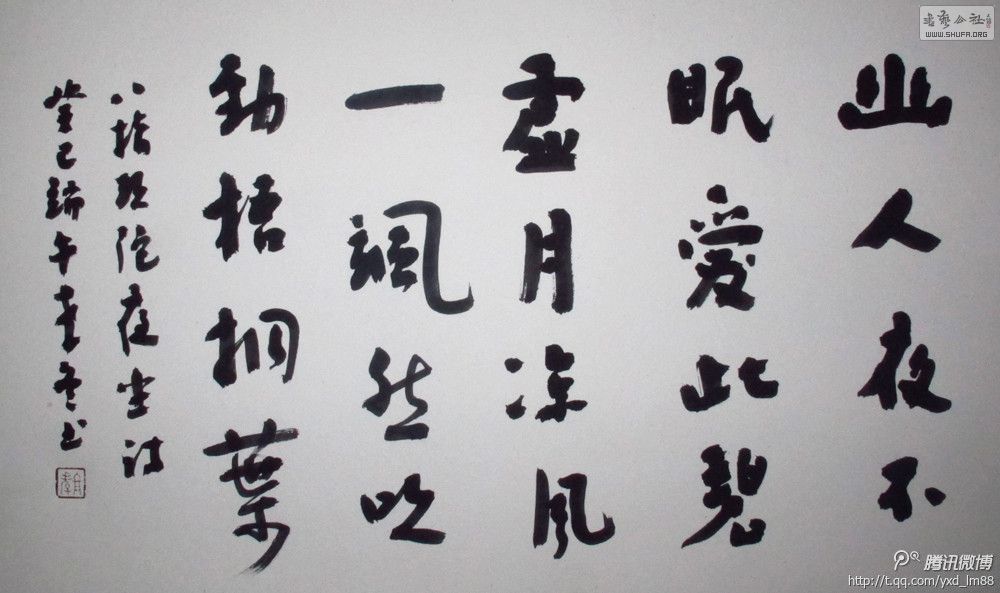 幽人夜不
眠愛此碧
虛月凉風
一颯然吹
動梧桐葉
八指頭陀夜坐诗
癸巳端午
书
書藝公社
WWW.SHUFA.ORG
腾讯微博
http://t.qq.com/yxd_lm88